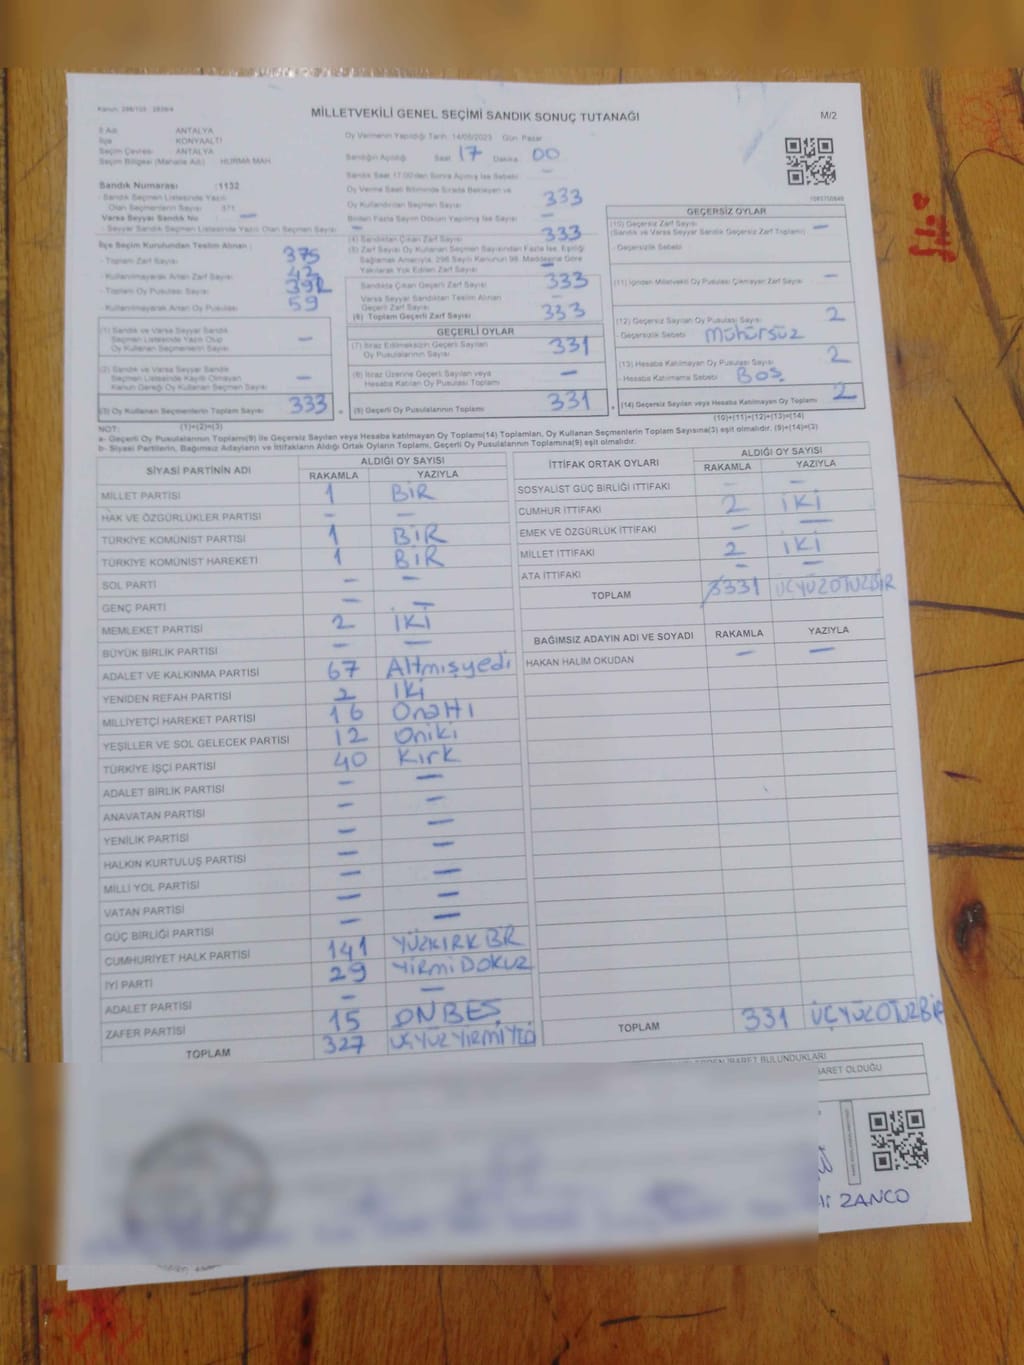 MİLLETVEKİLİ GENEL SEÇİMİ SANDIK SONUÇ TUTANAĞI
M/2
İl Adı ANTALYA
İlçe KONYAALTI
Seçim Çevresi ANTALYA
Seçim Bölgesi (Mahalle Adı) HURMA MAH
Oy Vermenin Yapıldığı Tarih 14/05/2023 Gün Pazar
Sandığın Açıldığı Saat 17 Dakika 00
Sandık Numarası :1132
Sandık Seçmen Listesinde Yazılı
Olan Seçmenlerin Sayısı 371
Varsa Seyyar Sandık No —
Seyyar Sandık Seçmen Listesinde Yazılı Olan Seçmen Sayısı —
Sandık Saat 17:00'den Sonra Açılmış İse Sebebi —
Oy Verme Saati Bitiminde Sırada Bekleyen ve
Oy Kullandırılan Seçmen Sayısı 333
Birden Fazla Sayım Döküm Yapılmış İse Sayısı —
İlçe Seçim Kurulundan Teslim Alınan :
- Toplam Zarf Sayısı 375
- Kullanılmayarak Artan Zarf Sayısı 42
- Toplam Oy Pusulası Sayısı 392
- Kullanılmayarak Artan Oy Pusulası 59
(1) Sandık ve Varsa Seyyar Sandık
Seçmen Listesinde Yazılı Olup
Oy Kullanan Seçmenlerin Sayısı —
(2) Sandık ve Varsa Seyyar Sandık
Seçmen Listesinde Kayıtlı Olmayan
Kanun Gereği Oy Kullanan Seçmen Sayısı —
(3) Oy Kullanan Seçmenlerin Toplam Sayısı 333
(1)+(2)=(3)
(4) Sandıktan Çıkan Zarf Sayısı 333
(5) Zarf Sayısı Oy Kullanan Seçmen Sayısından Fazla İse, Eşitliği
Sağlamak Amacıyla, 298 Sayılı Kanunun 98. Maddesine Göre
Yakılarak Yok Edilen Zarf Sayısı —
Sandıkta Çıkan Geçerli Zarf Sayısı 333
Varsa Seyyar Sandıktan Teslim Alınan
Geçerli Zarf Sayısı —
(6) Toplam Geçerli Zarf Sayısı 333
GEÇERLİ OYLAR
(7) İtiraz Edilmeksizin Geçerli Sayılan
Oy Pusulalarının Sayısı 331
(8) İtiraz Üzerine Geçerli Sayılan veya
Hesaba Katılan Oy Pusulası Toplamı —
(9) Geçerli Oy Pusulalarının Toplamı 331
GEÇERSİZ OYLAR
(10) Geçersiz Zarf Sayısı
(Sandık ve Varsa Seyyar Sandık Geçersiz Zarf Toplamı) —
- Geçersizlik Sebebi
(11) İçinden Milletvekili Oy Pusulası Çıkmayan Zarf Sayısı —
(12) Geçersiz Sayılan Oy Pusulası Sayısı 2
- Geçersizlik Sebebi Mühürsüz
(13) Hesaba Katılmayan Oy Pusulası Sayısı 2
- Hesaba Katılmama Sebebi BOŞ
(14) Geçersiz Sayılan veya Hesaba Katılmayan Oy Toplamı 2
(10)+(11)+(12)+(13)=(14)
NOT:
a- Geçerli Oy Pusulalarının Toplamı(9) ile Geçersiz Sayılan veya Hesaba katılmayan Oy Toplamı(14) Toplamları, Oy Kullanan Seçmenlerin Toplam Sayısına(3) eşit olmalıdır. (9)+(14)=(3)
b- Siyasi Partilerin, Bağımsız Adayların ve İttifakların Aldığı Oyların Toplamı, Geçerli Oy Pusulalarının Toplamına(9) eşit olmalıdır.
SİYASİ PARTİNİN ADI
ALDIĞI OY SAYISI
RAKAMLA YAZIYLA
MİLLET PARTİSİ 1 BİR
HAK VE ÖZGÜRLÜKLER PARTİSİ — —
TÜRKİYE KOMÜNİST PARTİSİ 1 BİR
TÜRKİYE KOMÜNİST HAREKETİ 1 BİR
SOL PARTİ — —
GENÇ PARTİ — —
MEMLEKET PARTİSİ 2 İKİ
BÜYÜK BİRLİK PARTİSİ — —
ADALET VE KALKINMA PARTİSİ 67 Altmışyedi
YENİDEN REFAH PARTİSİ 2 İki
MİLLİYETÇİ HAREKET PARTİSİ 16 Onaltı
YEŞİLLER VE SOL GELECEK PARTİSİ 12 Oniki
TÜRKİYE İŞÇİ PARTİSİ 40 Kırk
ADALET BİRLİK PARTİSİ — —
ANAVATAN PARTİSİ — —
YENİLİK PARTİSİ — —
HALKIN KURTULUŞ PARTİSİ — —
MİLLİ YOL PARTİSİ — —
VATAN PARTİSİ — —
GÜÇ BİRLİĞİ PARTİSİ — —
CUMHURİYET HALK PARTİSİ 141 YÜZKIRK BR
İYİ PARTİ 29 YİRMİ DOKUZ
ADALET PARTİSİ — —
ZAFER PARTİSİ 15 ONBEŞ
TOPLAM 327 ÜÇYÜZ YİRMİ YEDİ
İTTİFAK ORTAK OYLARI
ALDIĞI OY SAYISI
RAKAMLA YAZIYLA
SOSYALİST GÜÇ BİRLİĞİ İTTİFAKI — —
CUMHUR İTTİFAKI 2 İKİ
EMEK VE ÖZGÜRLÜK İTTİFAKI — —
MİLLET İTTİFAKI 2 İKİ
ATA İTTİFAKI — —
TOPLAM 331 ÜÇYÜZOTUZBİR
BAĞIMSIZ ADAYIN ADI VE SOYADI RAKAMLA YAZIYLA
HAKAN HALİM OKUDAN — —
TOPLAM 331 ÜÇYÜZOTUZBİR
İBARET BULUNDUKLARI
İBARET OLDUĞU
ZANCO